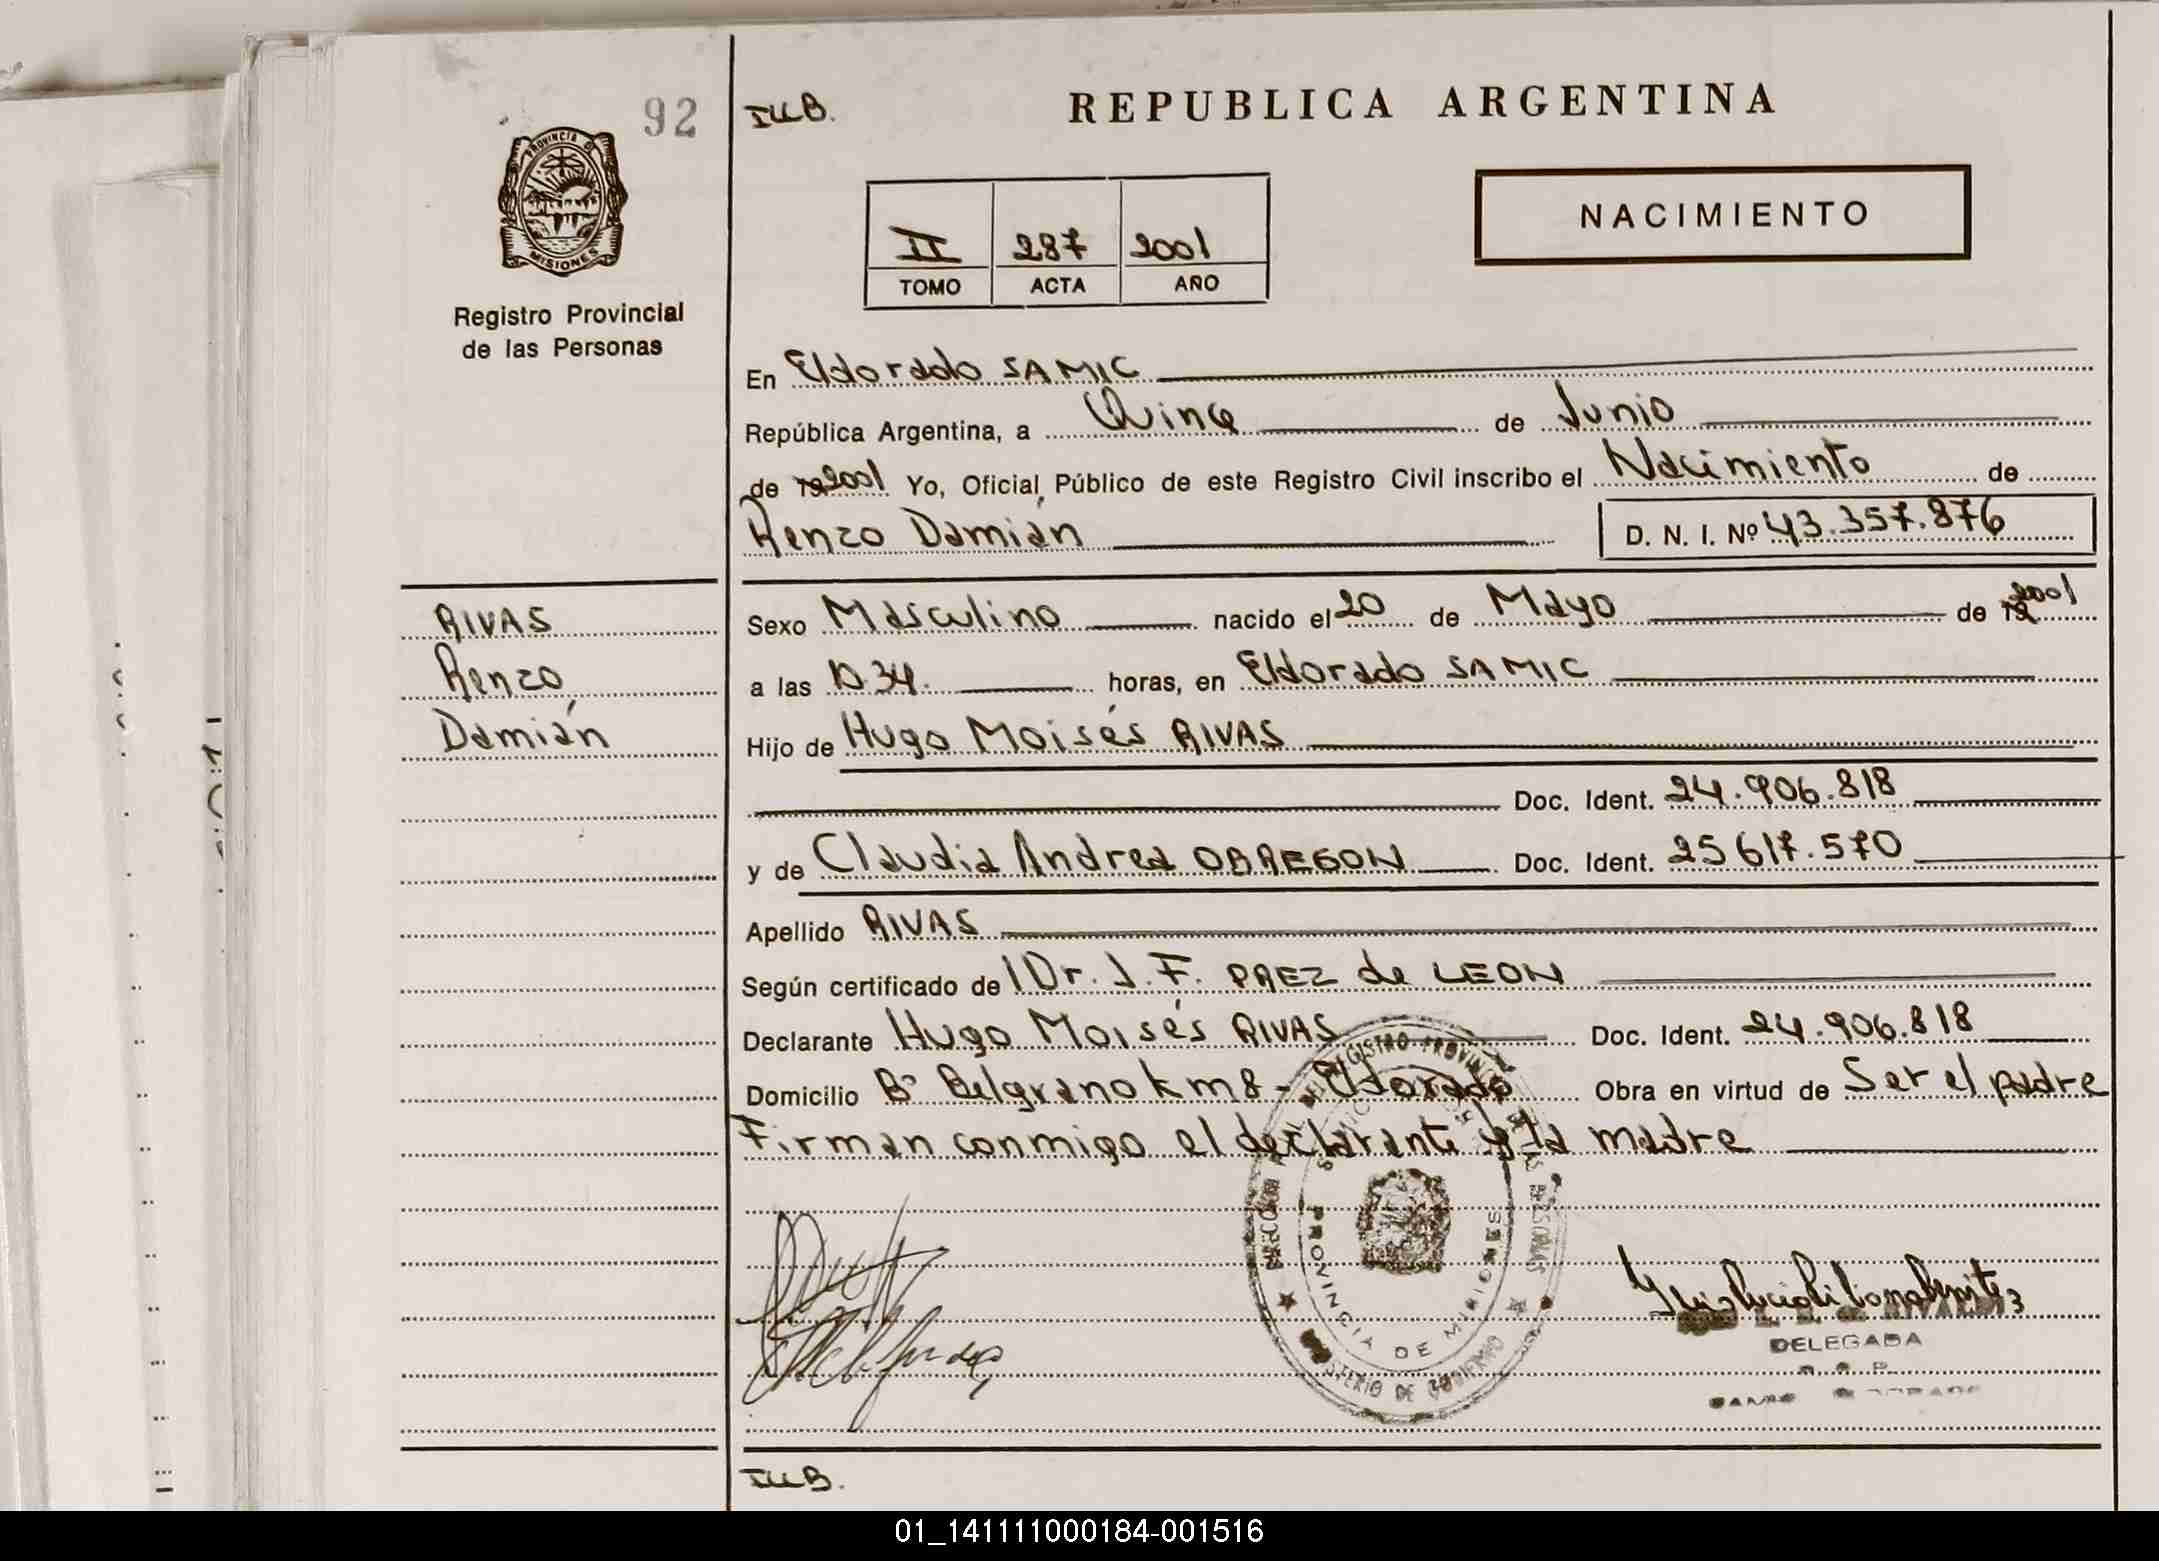 92
PROVINCIA DE
MISIONES
Registro Provincial
de las Personas
RIVAS
Renzo
Damián
ILLB.
REPUBLICA ARGENTINA
II 287 2001
TOMO ACTA AÑO
NACIMIENTO
En Eldorado SAMIC
República Argentina, a Quince de Junio
de 19 2001 Yo, Oficial Público de este Registro Civil inscribo el Nacimiento de
Renzo Damián D. N. I. Nº 43.357.876
Sexo Masculino nacido el 20 de Mayo de 19 2001
a las 10.34. horas, en Eldorado SAMIC
Hijo de Hugo Moisés RIVAS
Doc. Ident. 24.906.818
y de Claudia Andrea OBREGON Doc. Ident. 25617.570
Apellido RIVAS
Según certificado de Dr. J. F. PAEZ de LEON
Declarante Hugo Moisés RIVAS Doc. Ident. 24.906.818
Domicilio Bº Belgrano km 8 - Eldorado Obra en virtud de Ser el padre
Firman conmigo el declarante y la madre
PROVINCIA DE MISIONES
MINISTERIO DE GOBIERNO
DELEGADA
ILLB.
01_141111000184-001516